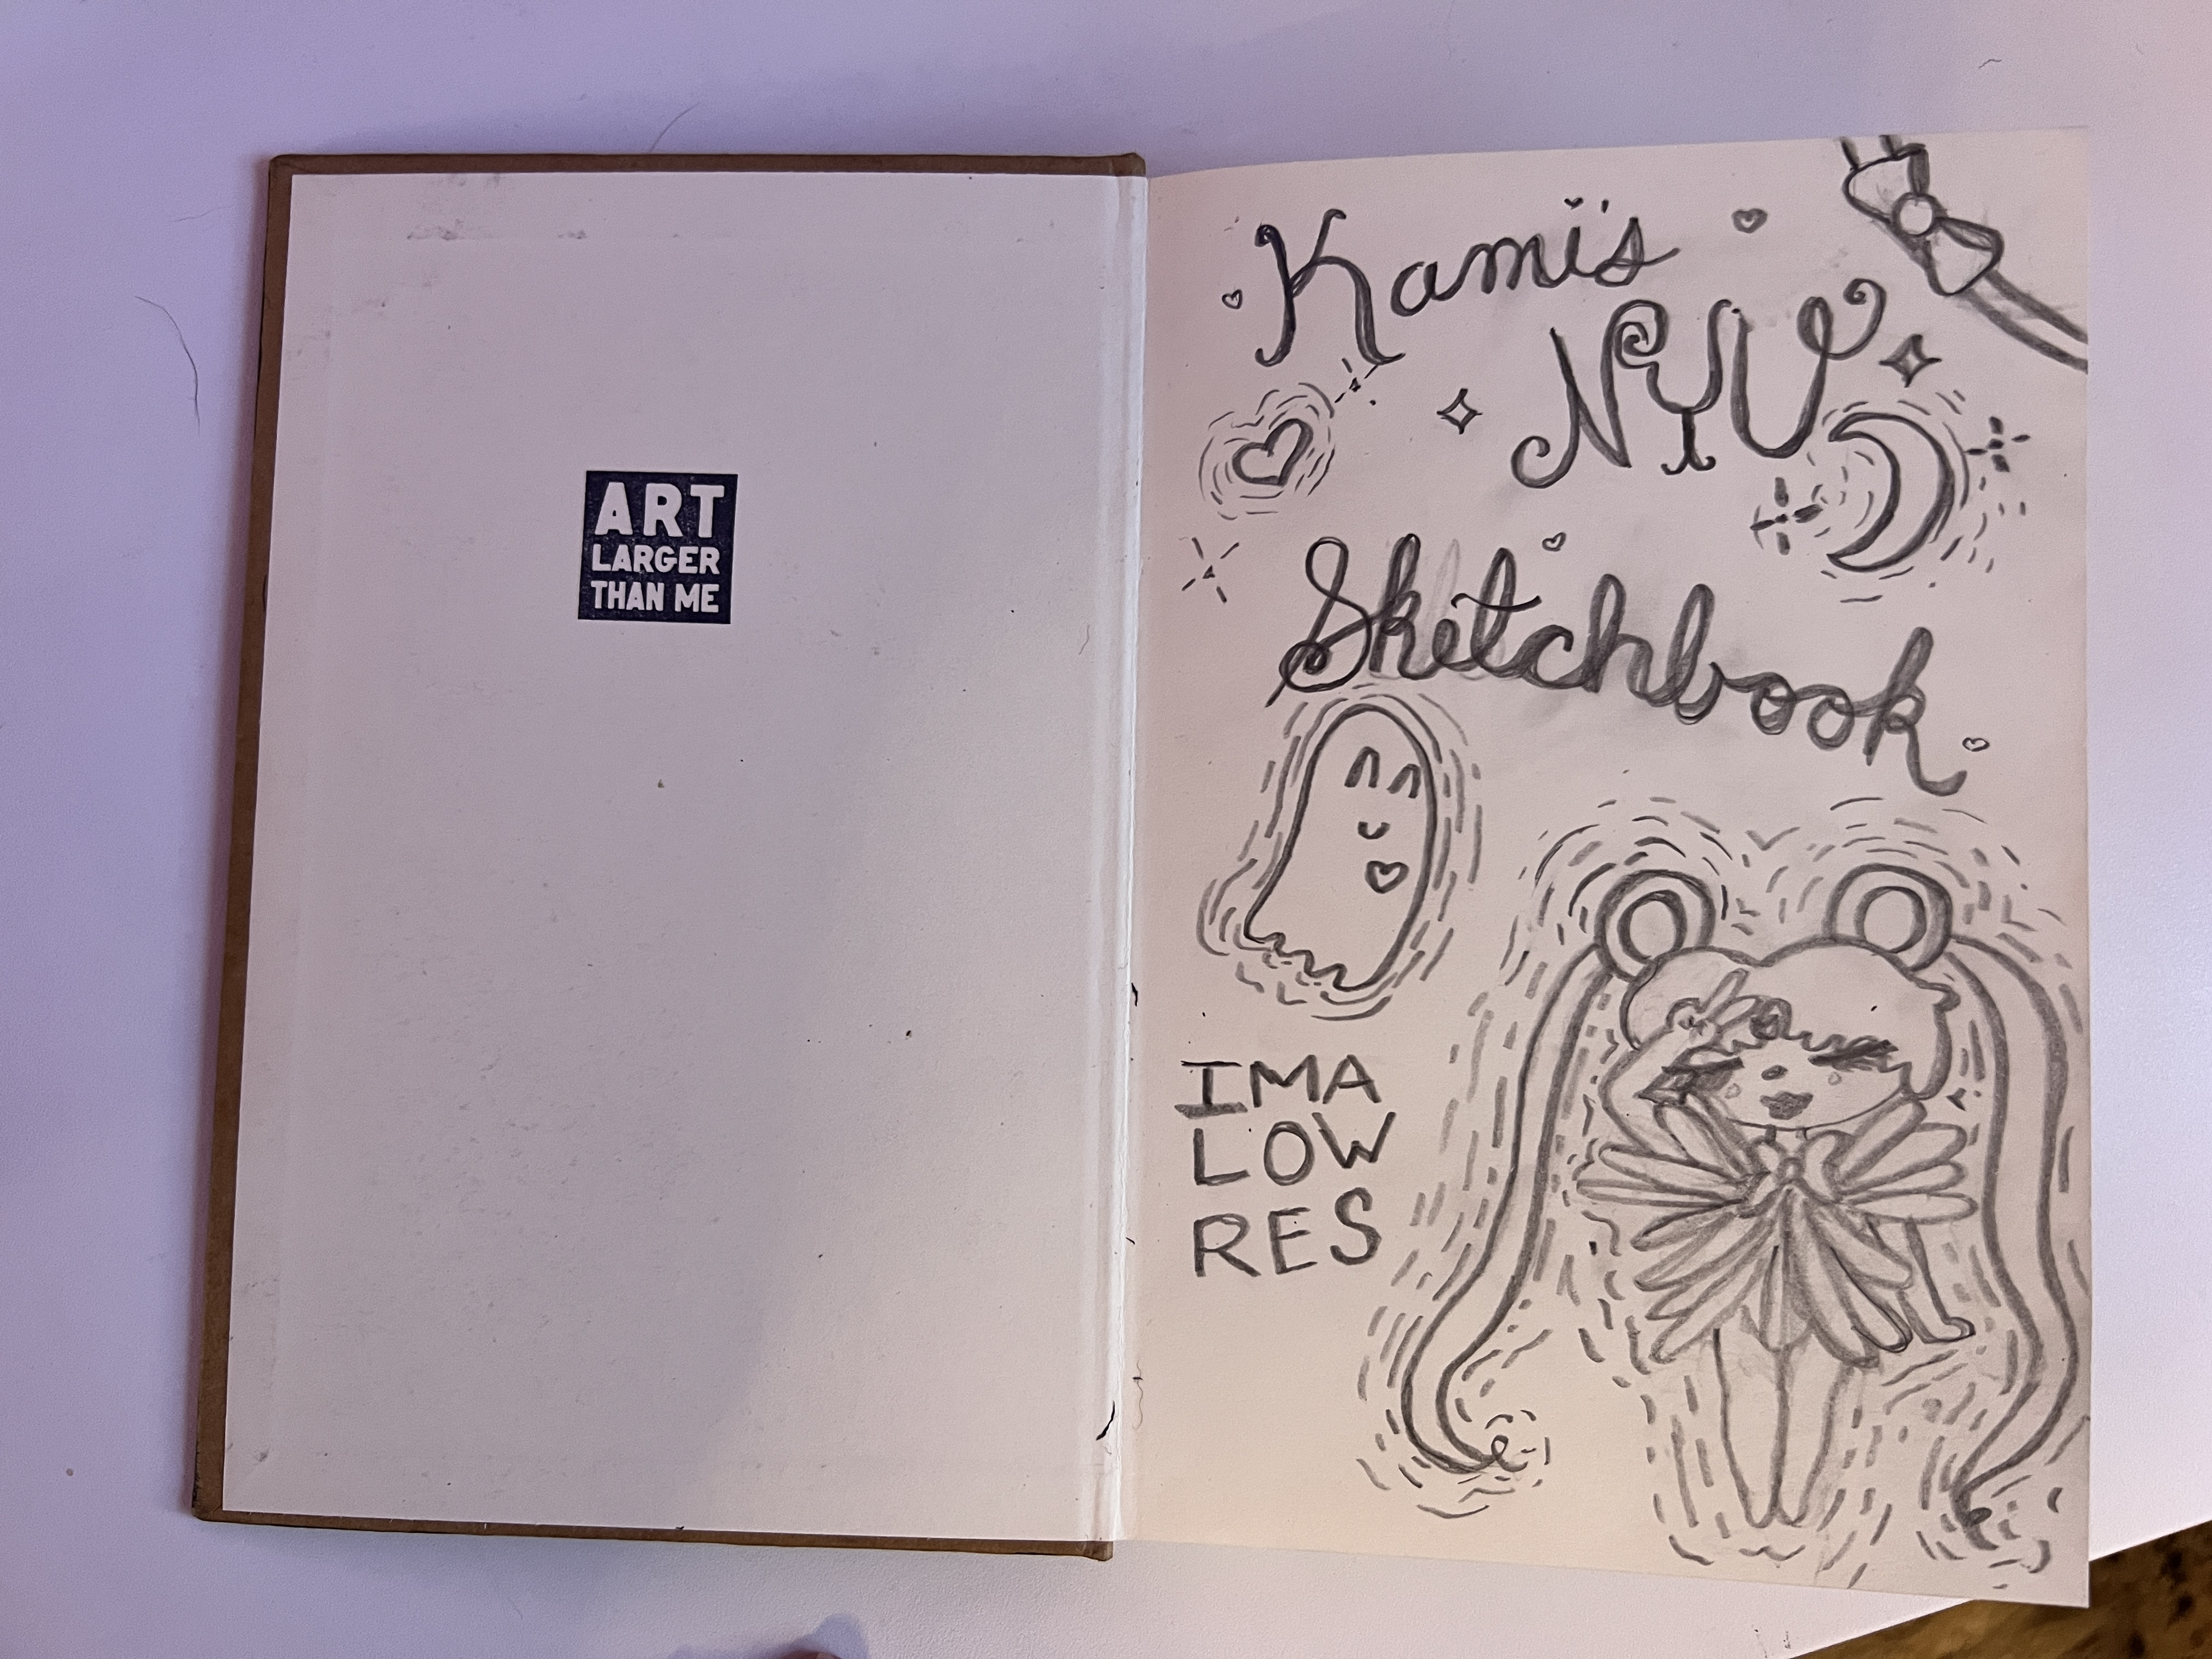 ART
LARGER
THAN ME
Kami's
NYU
Sketchbook
IMA
LOW
RES